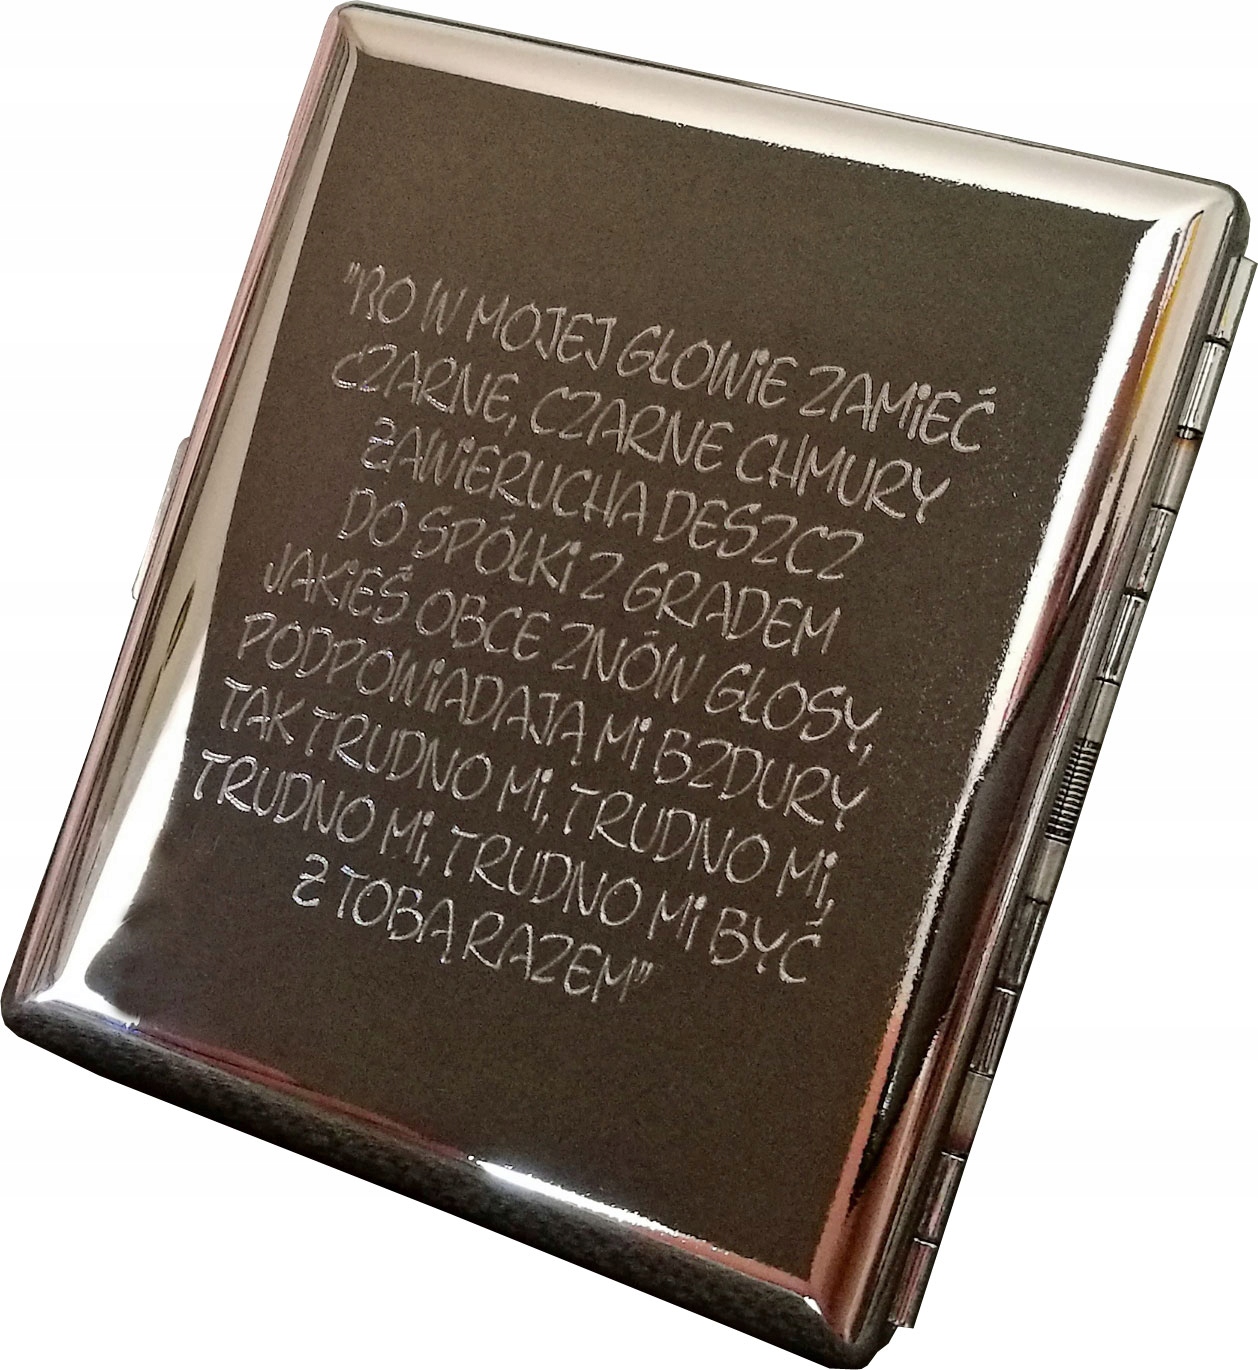 "BO W MOJEJ GŁOWIE ZAMIEĆ
CZARNE, CZARNE CHMURY
ZAWIERUCHA DESZCZ
DO SPÓŁKI Z GRADEM
JAKIEŚ OBCE ZNÓW GŁOSY,
PODPOWIADAJĄ MI BZDURY
TAK TRUDNO MI, TRUDNO MI,
TRUDNO MI, TRUDNO MI BYĆ
Z TOBĄ RAZEM"